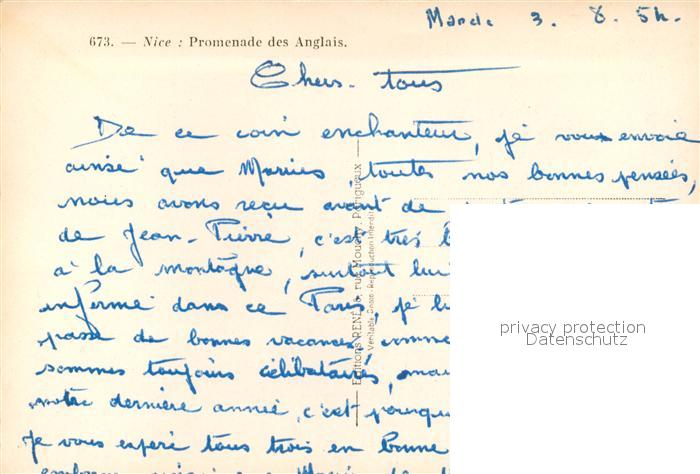 Mardi 3. 8. 54.
673. — Nice : Promenade des Anglais.
Chers tous
De ce coin enchanteur, je vous envoie
ainsi que Marius, toutes nos bonnes pensées,
nous avons reçu avant de
de Jean-Pierre, c'est très
à la montagne, surtout lui
enfermé dans ce Paris, je
passe de bonnes vacances, comme
sommes toujours célibataires,
notre dernière année, c'est pourquoi
Je vous espère tous trois en bonne
Editions RENÉ, 6, rue Mouchy, Périgueux
Véritable Photo - Reproduction Interdite
privacy protection
Datenschutz